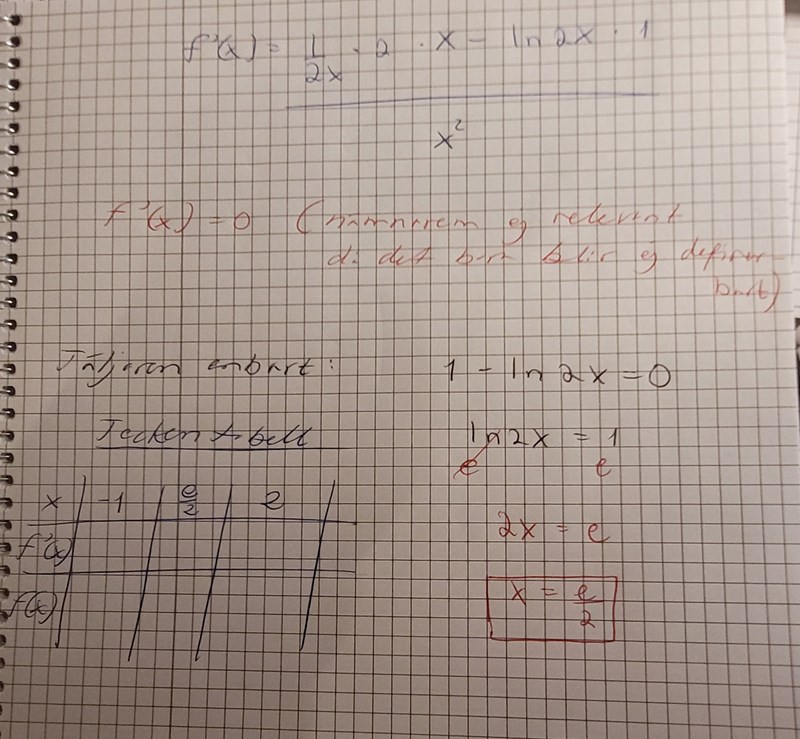 f'(x) = 1/2x · 2 · x - ln 2x · 1
x²
f'(x) = 0 (nämnaren ej relevant
då det bara blir ej definier-
bart)
Täljaren enbart: 1 - ln 2x = 0
Teckentabell ln 2x = 1
e e
x -1 e/2 2
2x = e
f'(x)
x = e/2
f(x)